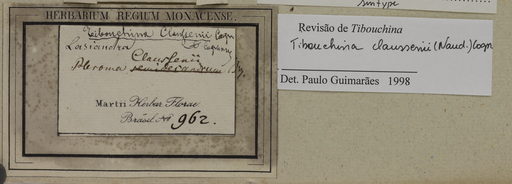 HERBARIUM REGIUM MONACENSE.
Tibouchina Claussenii Cogn
Lasiandra
Claussenii
Pleroma
Martii Herbar. Florae
Brasil. No 962.
syntype
Revisão de Tibouchina
Tibouchina claussenii (Naud.) Cogn
Det. Paulo Guimarães 1998